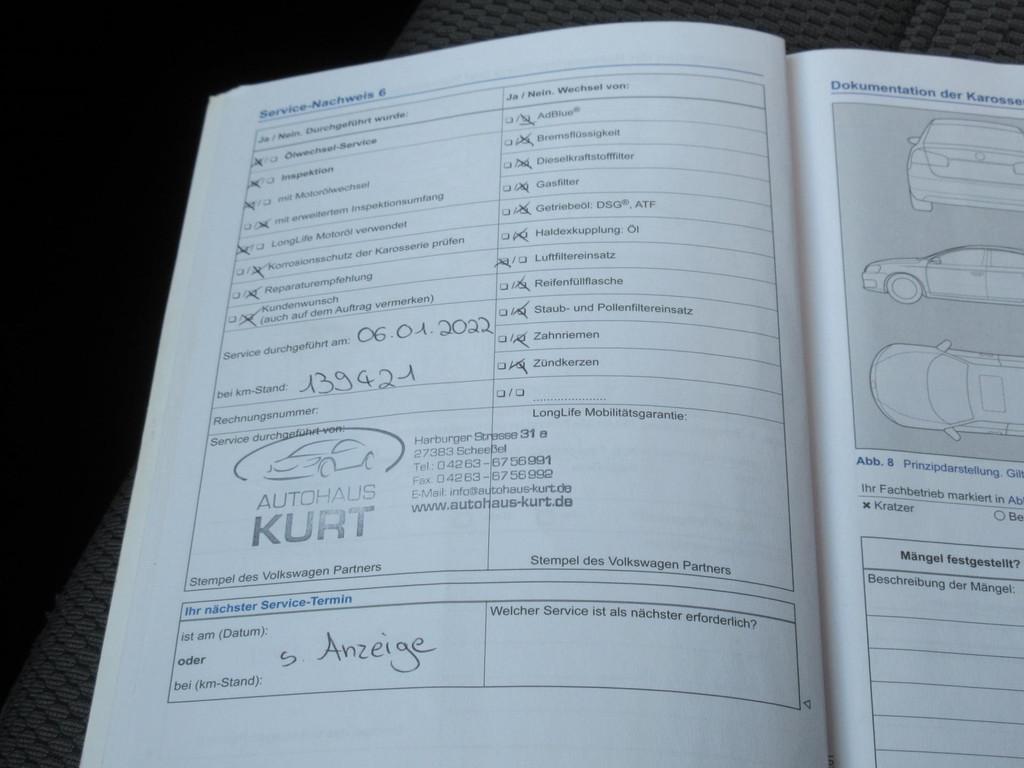 Service-Nachweis 6
Ja / Nein. Durchgeführt wurde:
Ölwechsel-Service
Inspektion
mit Motorölwechsel
mit erweitertem Inspektionsumfang
LongLife Motoröl verwendet
Korrosionsschutz der Karosserie prüfen
Reparaturempfehlung
Kundenwunsch
(auch auf dem Auftrag vermerken)
Service durchgeführt am: 06.01.2022
bei km-Stand: 139421
Rechnungsnummer:
Service durchgeführt von:
AUTOHAUS
KURT
Stempel des Volkswagen Partners
Ja / Nein. Wechsel von:
AdBlue®
Bremsflüssigkeit
Dieselkraftstofffilter
Gasfilter
Getriebeöl: DSG®, ATF
Haldexkupplung: Öl
Luftfiltereinsatz
Reifenfüllflasche
Staub- und Pollenfiltereinsatz
Zahnriemen
Zündkerzen
LongLife Mobilitätsgarantie:
Harburger Strasse 31 a
27383 Scheeßel
Tel.: 04263-6756991
Fax: 04263-6756992
E-Mail: info@autohaus-kurt.de
www.autohaus-kurt.de
Stempel des Volkswagen Partners
Ihr nächster Service-Termin
ist am (Datum):
oder
s. Anzeige
bei (km-Stand):
Welcher Service ist als nächster erforderlich?
Dokumentation der Karosse
Abb. 8 Prinzipdarstellung. Gilt
Ihr Fachbetrieb markiert in Ab
× Kratzer
Be
Mängel festgestellt?
Beschreibung der Mängel: